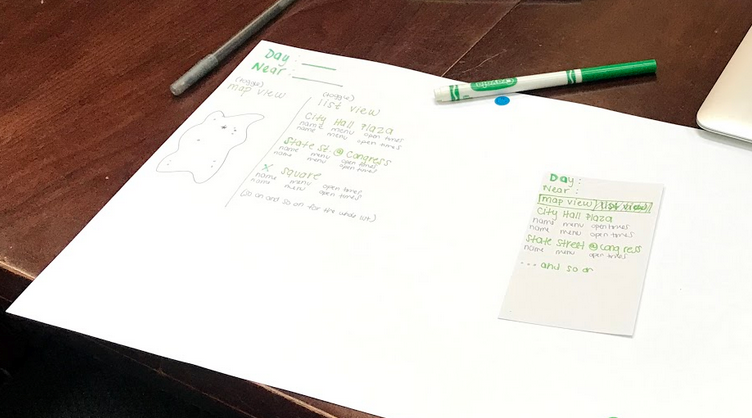 Day:
Near:
(toggle)
map view
(toggle)
list view
City Hall Plaza
name menu open times
name menu open times
State St. @ Congress
name menu open times
name menu open times
X Square
name menu open times
name menu open times
(so on and so on for the whole list)
Crayola
Day:
Near:
map view list view
City Hall Plaza
name menu open times
name menu open times
State Street @ Congress
name menu open times
... and so on